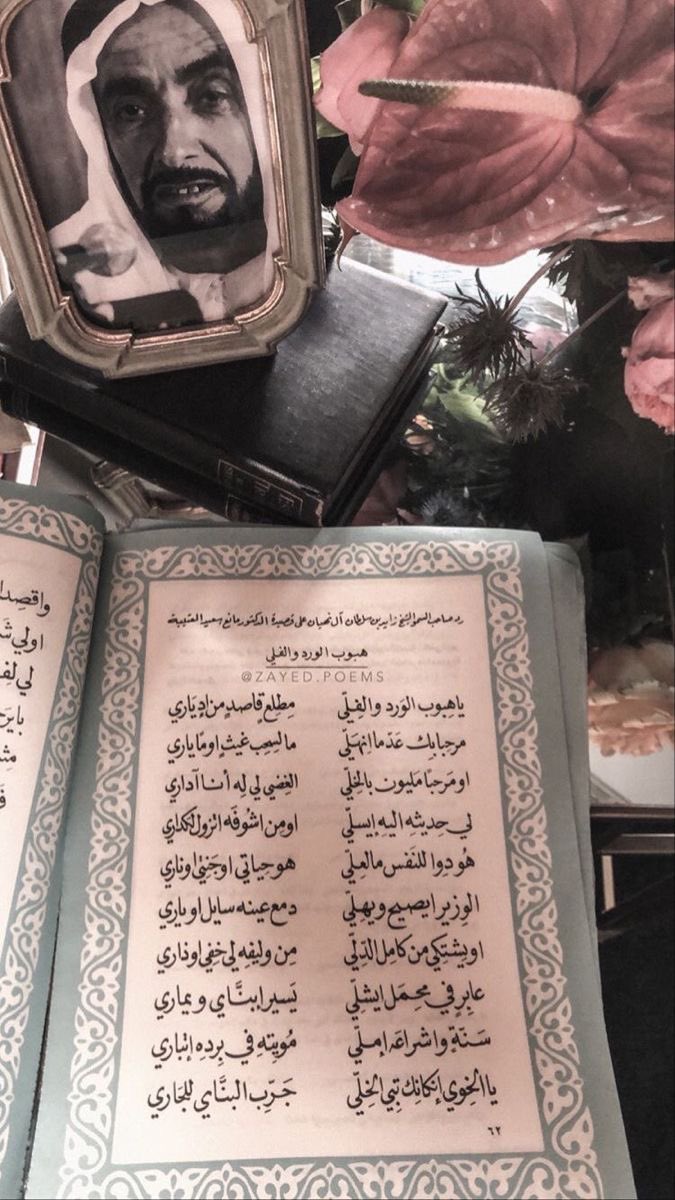 رد صاحب السمو الشيخ زايد بن سلطان آل نهيان على قصيدة الدكتور مانع سعيد العتيبة
هبوب الورد والفلي
@ZAYED.POEMS
يا هبوب الورد والفلّي مطلع قاصدٍ من ادياري
مرحبا بك عدّ ما انهلّي ما السحب غيثٍ او ما ياري
او مرحبا مليون بالخلّي الغضي لي له أنا آداري
لي حديثه اليه ايسلّي او من اشوفه اتزول اكداري
هو دوا للنفس م العلّي هو حياتي او جنتي اوناري
الوزير ايصيح ويهلّي دمع عينه سايل اوياري
اويشتكي من كامل الدلّي من وليفه لي خفي اوذاري
عابر في محمل ايشلّي يسير ابنّاي ويماري
سنّة واشراعه إملّي مويته في برده إتباري
يا الخوي إنكانك تبي الخلّي جرّب البنّاي للجاري
٦٢
واقصد
اولي
لي